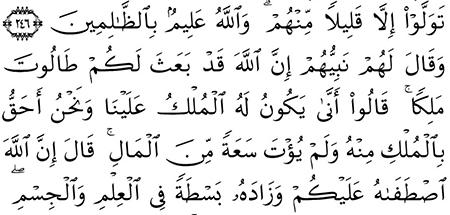 تَوَلَّوْا۟ إِلَّا قَلِيلًا مِّنْهُمْ ۗ وَٱللَّهُ عَلِيمٌۢ بِٱلظَّـٰلِمِينَ ﴿٢٤٦﴾
وَقَالَ لَهُمْ نَبِيُّهُمْ إِنَّ ٱللَّهَ قَدْ بَعَثَ لَكُمْ طَالُوتَ
مَلِكًا ۚ قَالُوٓا۟ أَنَّىٰ يَكُونُ لَهُ ٱلْمُلْكُ عَلَيْنَا وَنَحْنُ أَحَقُّ
بِٱلْمُلْكِ مِنْهُ وَلَمْ يُؤْتَ سَعَةً مِّنَ ٱلْمَالِ ۚ قَالَ إِنَّ ٱللَّهَ
ٱصْطَفَىٰهُ عَلَيْكُمْ وَزَادَهُۥ بَسْطَةً فِى ٱلْعِلْمِ وَٱلْجِسْمِ ۖ